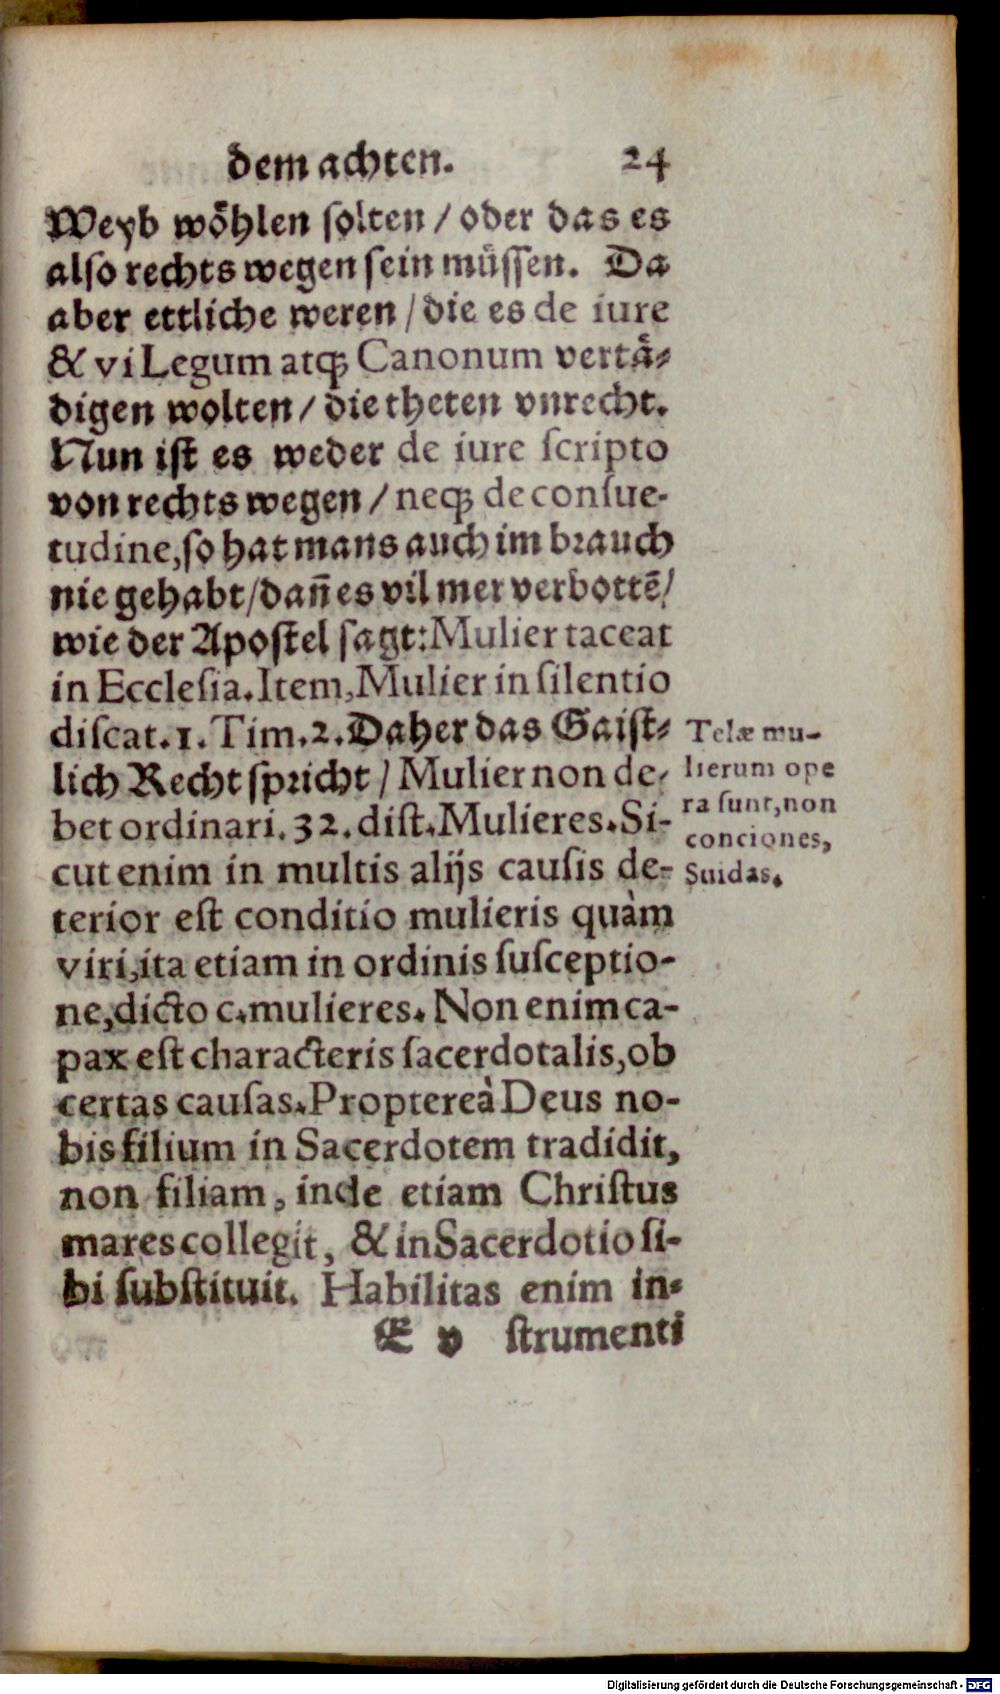 dem achten. 24
Weyb wöhlen ſolten / oder das es
alſo rechts wegen ſein müſſen. Da
aber ettliche weren / die es de iure
& vi Legum atq; Canonum vertå⸗
digen wolten / die theten vnrecht.
Nun iſt es weder de iure ſcripto
von rechts wegen / neq; de conſue-
tudine, ſo hat mans auch im brauch
nie gehabt / dañ es vil mer verbottē /
wie der Apoſtel ſagt: Mulier taceat
in Eccleſia. Item, Mulier in ſilentio
diſcat. 1. Tim. 2. Daher das Gaiſt⸗
lich Recht ſpricht / Mulier non de-
bet ordinari. 32. diſt. Mulieres. Si-
cut enim in multis alijs cauſis de-
terior eſt conditio mulieris quàm
viri, ita etiam in ordinis ſuſceptio-
ne, dicto c. mulieres. Non enim ca-
pax eſt characteris ſacerdotalis, ob
certas cauſas. Proptereà Deus no-
bis filium in Sacerdotem tradidit,
non filiam, inde etiam Chriſtus
mares collegit, & in Sacerdotio ſi-
bi ſubſtituit. Habilitas enim in-
E v ſtrumenti
Telæ mu-
lierum ope
ra ſunt, non
conciones,
Suidas.
Digitalisierung gefördert durch die Deutsche Forschungsgemeinschaft - DFG